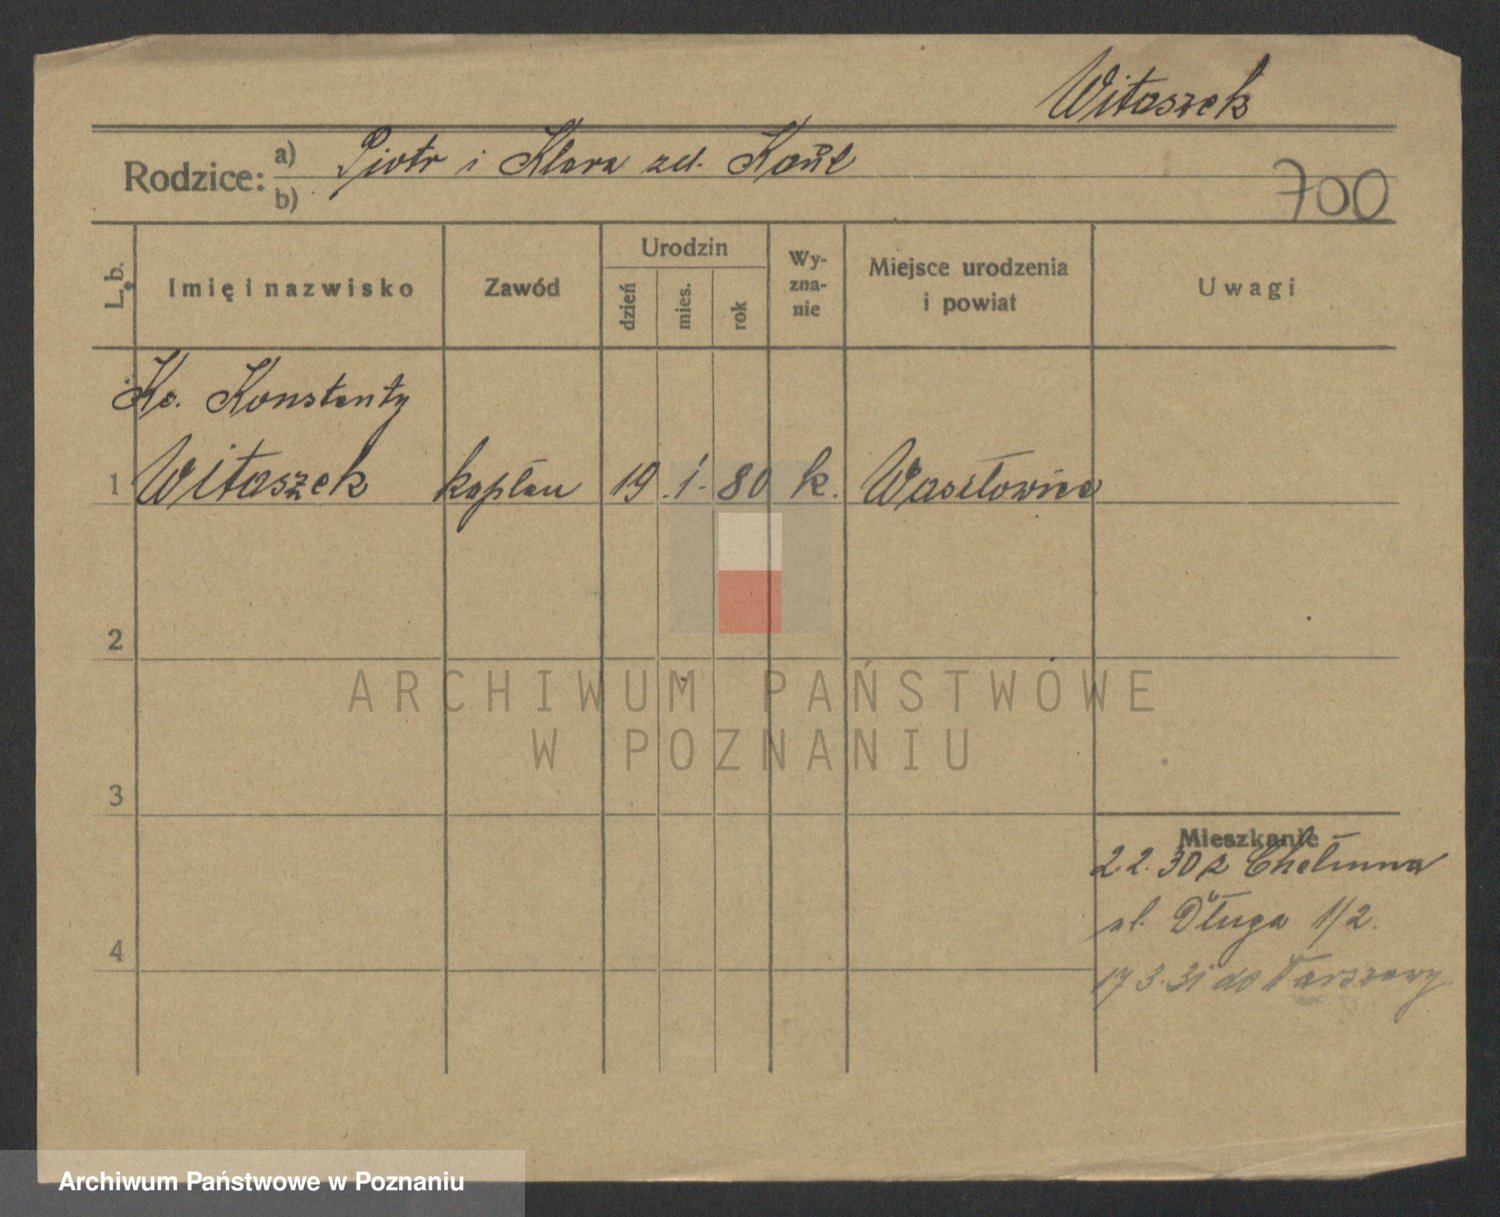 Witaszek
Rodzice: a) Piotr i Klara zd. Kaŭl
b)
700
L. b. Imię i nazwisko Zawód Urodzin dzień mies. rok Wy-zna-nie Miejsce urodzenia i powiat Uwagi
Ks. Konstanty
1 Witaszek kapłan 19 . 1. 80 k. Waszłowice
2
3
4
Mieszkanie
2.2.30 z Chełmna
ul. Długa 1/2
17 3. 31 do Warszawy
ARCHIWUM PAŃSTWOWE
W POZNANIU
Archiwum Państwowe w Poznaniu